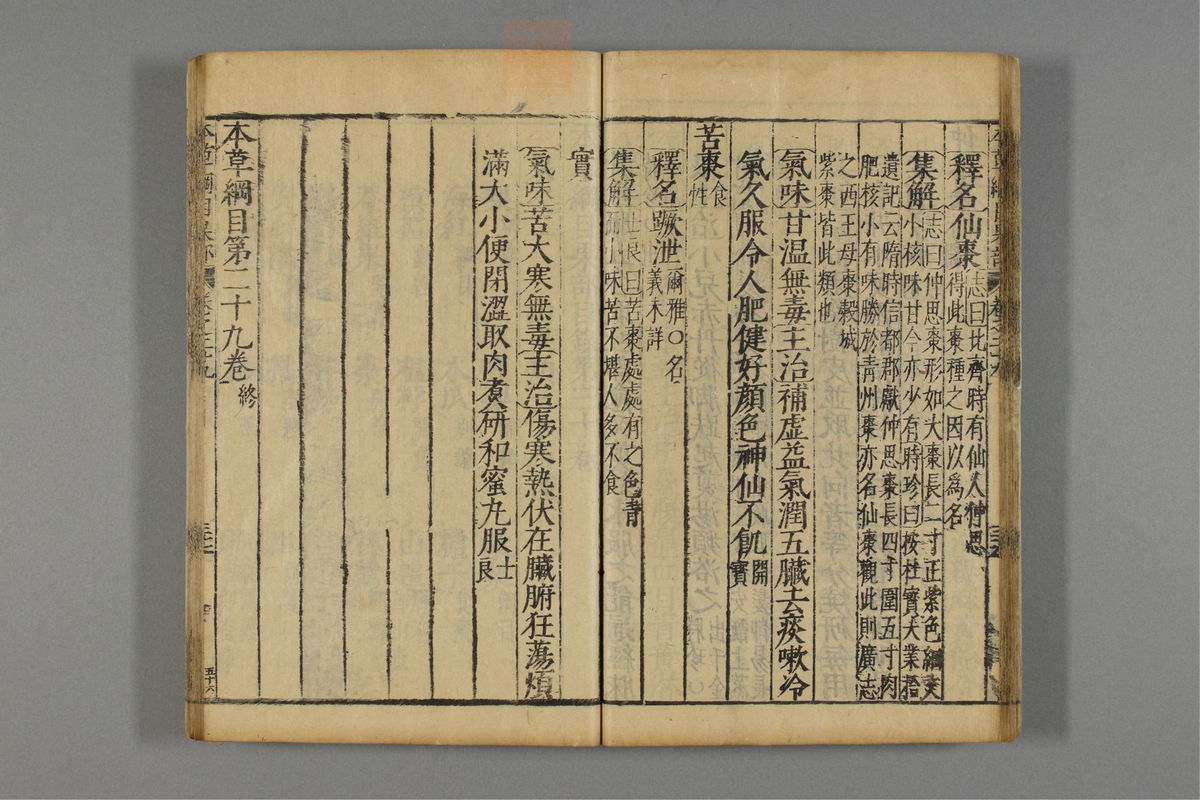 釋名仙棗志曰北齊時有仙人仲思
得此棗種之因以爲名
集解志曰仲思棗形如大棗長二寸正紫色細文
小核味甘今亦少有時珍曰按杜寶大業拾
遺記云隋時信都郡獻仲思棗長四寸圍五寸肉
肥核小有味勝於青州棗亦名仙棗觀此則廣志
之西王母棗穀城
紫棗皆此類也
氣味甘温無毒主治補虛益氣潤五臟去痰嗽冷
氣久服令人肥健好顔色神仙不飢開寶
苦棗食性
釋名蹶泄爾雅○名
義未詳
集解士良曰苦棗處處有之色青
而小味苦不堪人多不食
實
氣味苦大寒無毒主治傷寒熱伏在臟腑狂蕩煩
滿大小便閉澀取肉煮研和蜜丸服士良
本草綱目第二十九卷終
五十六